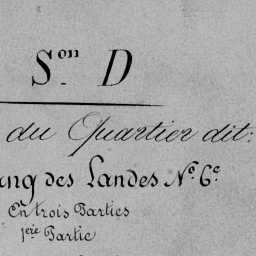 Son D
du Quartier dit:
ang des Landes No. 6e
En trois Parties
1ère Partie